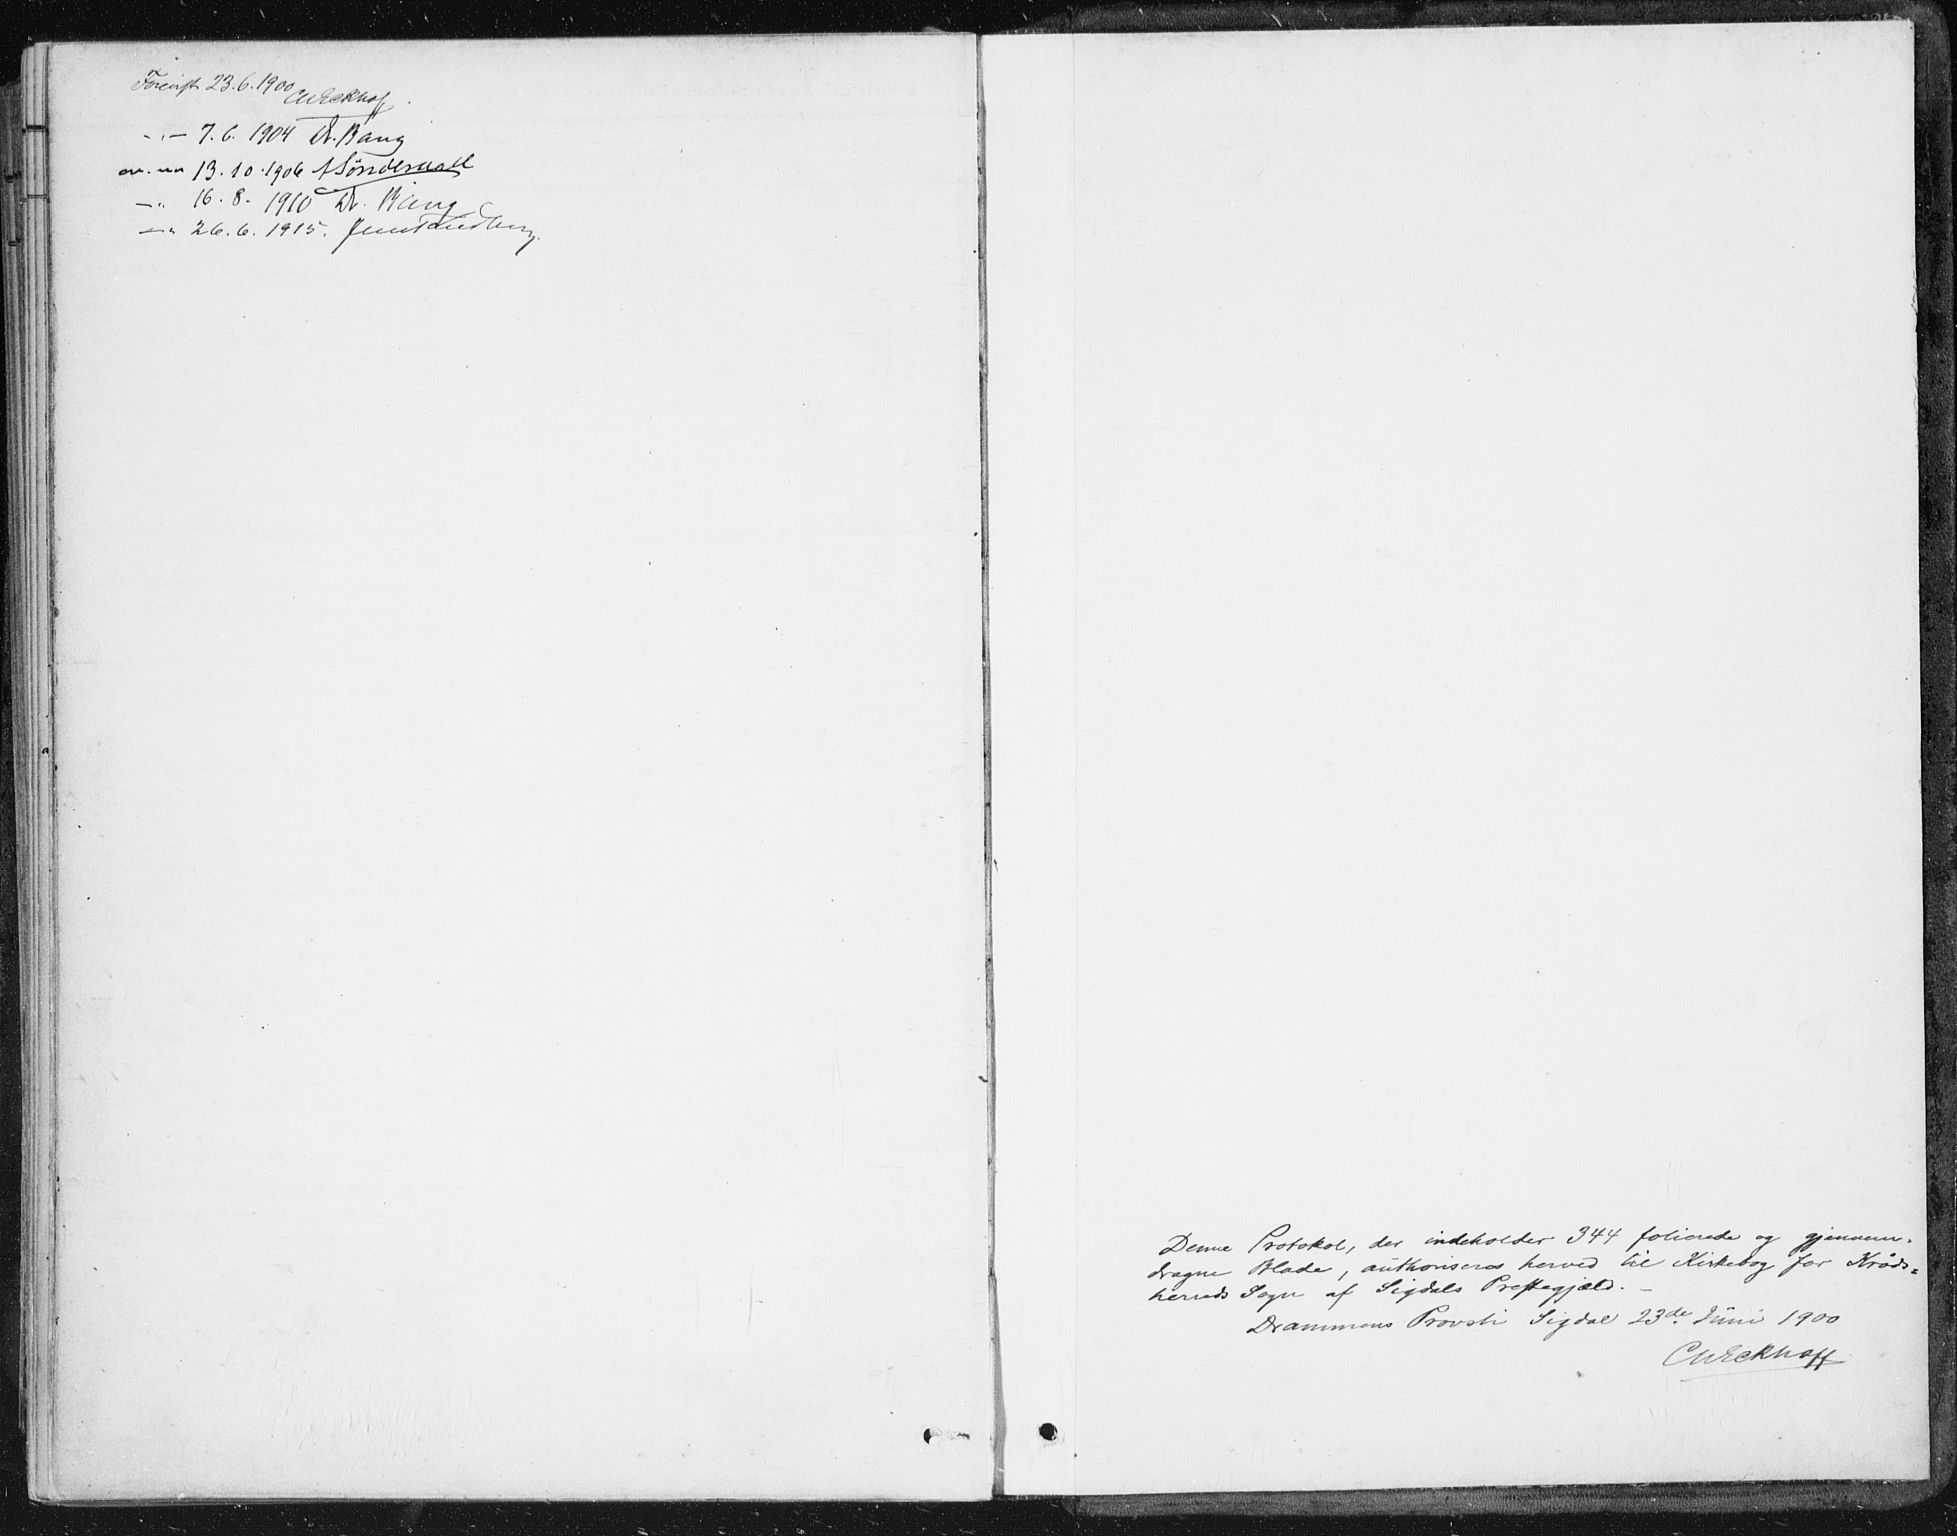 Forevist 23.6.1900 CWEckhoff
-"- 7.6. 1904 Dr. Bang
13.10.1906
-" 16.8. 1910 Dr. Bang
-" 26.6. 1915. Jens Tandberg.
Denne Protokol, der indeholder 344 folierede og gjennem-
dragne Blade, authoriseres herved til Kirkebog for Kråds=
herreds Sogn af Sigdals Prestegjæld. -
Drammens Provsti Sigdal 23de Juni 1900
CWEckhoff